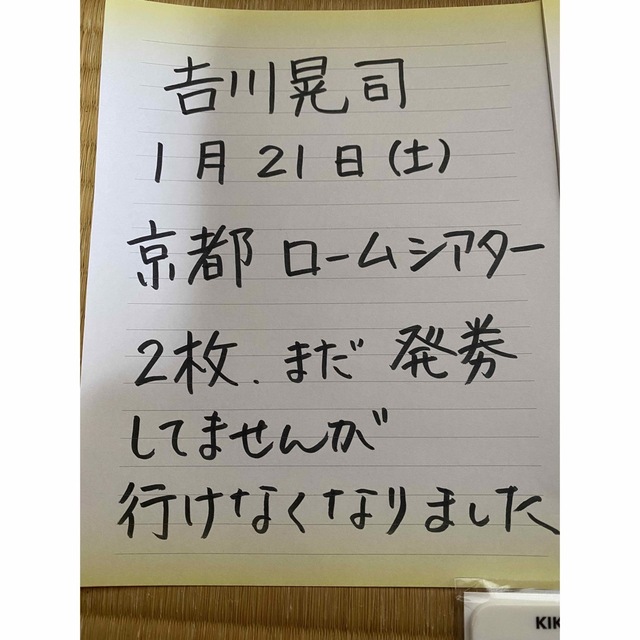 吉川晃司
1月21日(土)
京都 ロームシアター
2枚.まだ 発券
してませんが
行けなくなりました
KIK